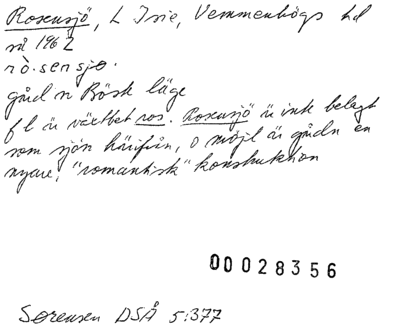 Rosensjö, L Isie, Vemmenhögs hd
nå 1962
rò.sensjø.
gård n Bösk läge
fl ä växtbet ros. Rosensjö ä ink belagt
som sjön härifrån, o möjl är gårdn en
nyare, "romantisk" konstruktion
00028356
Sørensen DSÅ 5:377